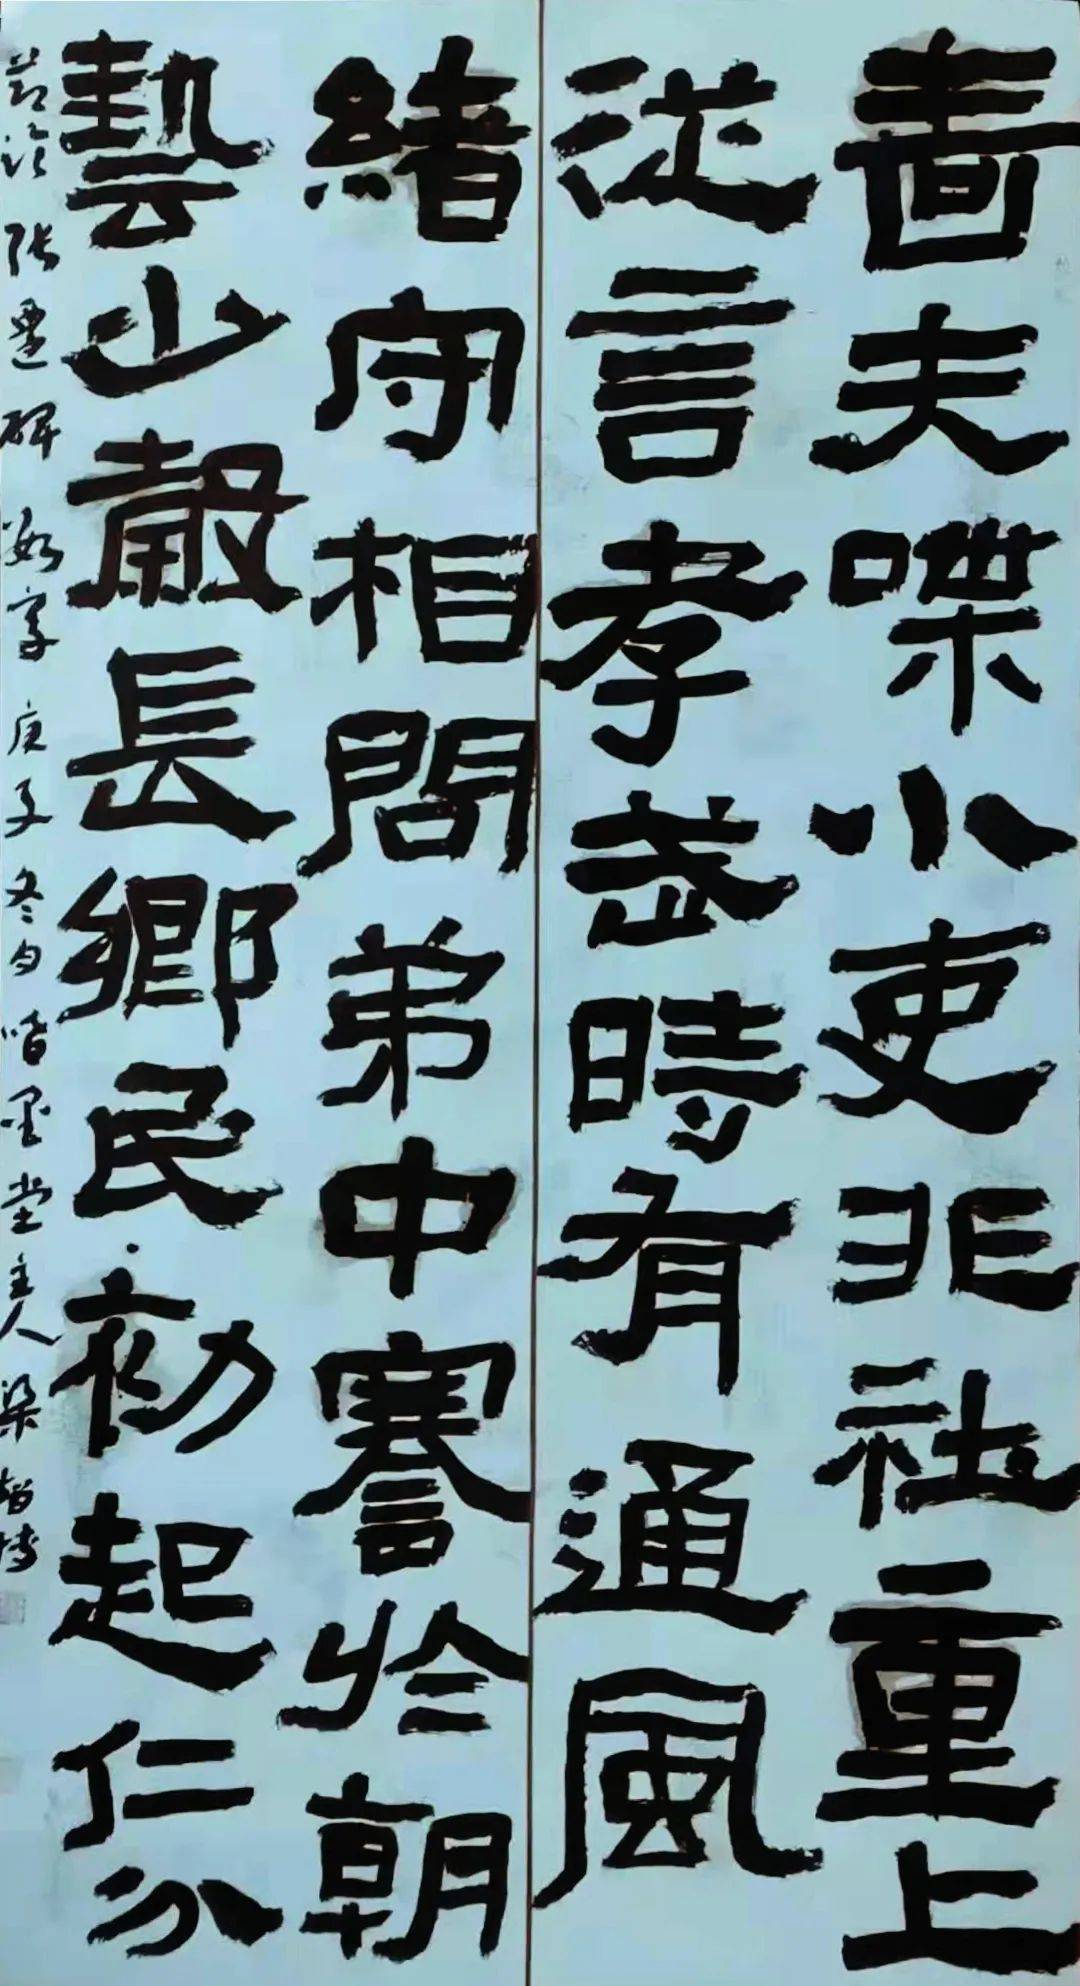 嗇夫喋小吏非社重上
從言孝武時有通風
緒守相問弟中謇於朝
藝山長鄉民初起仁分
節臨張遷碑数字庚子冬墨堂主人梁智博